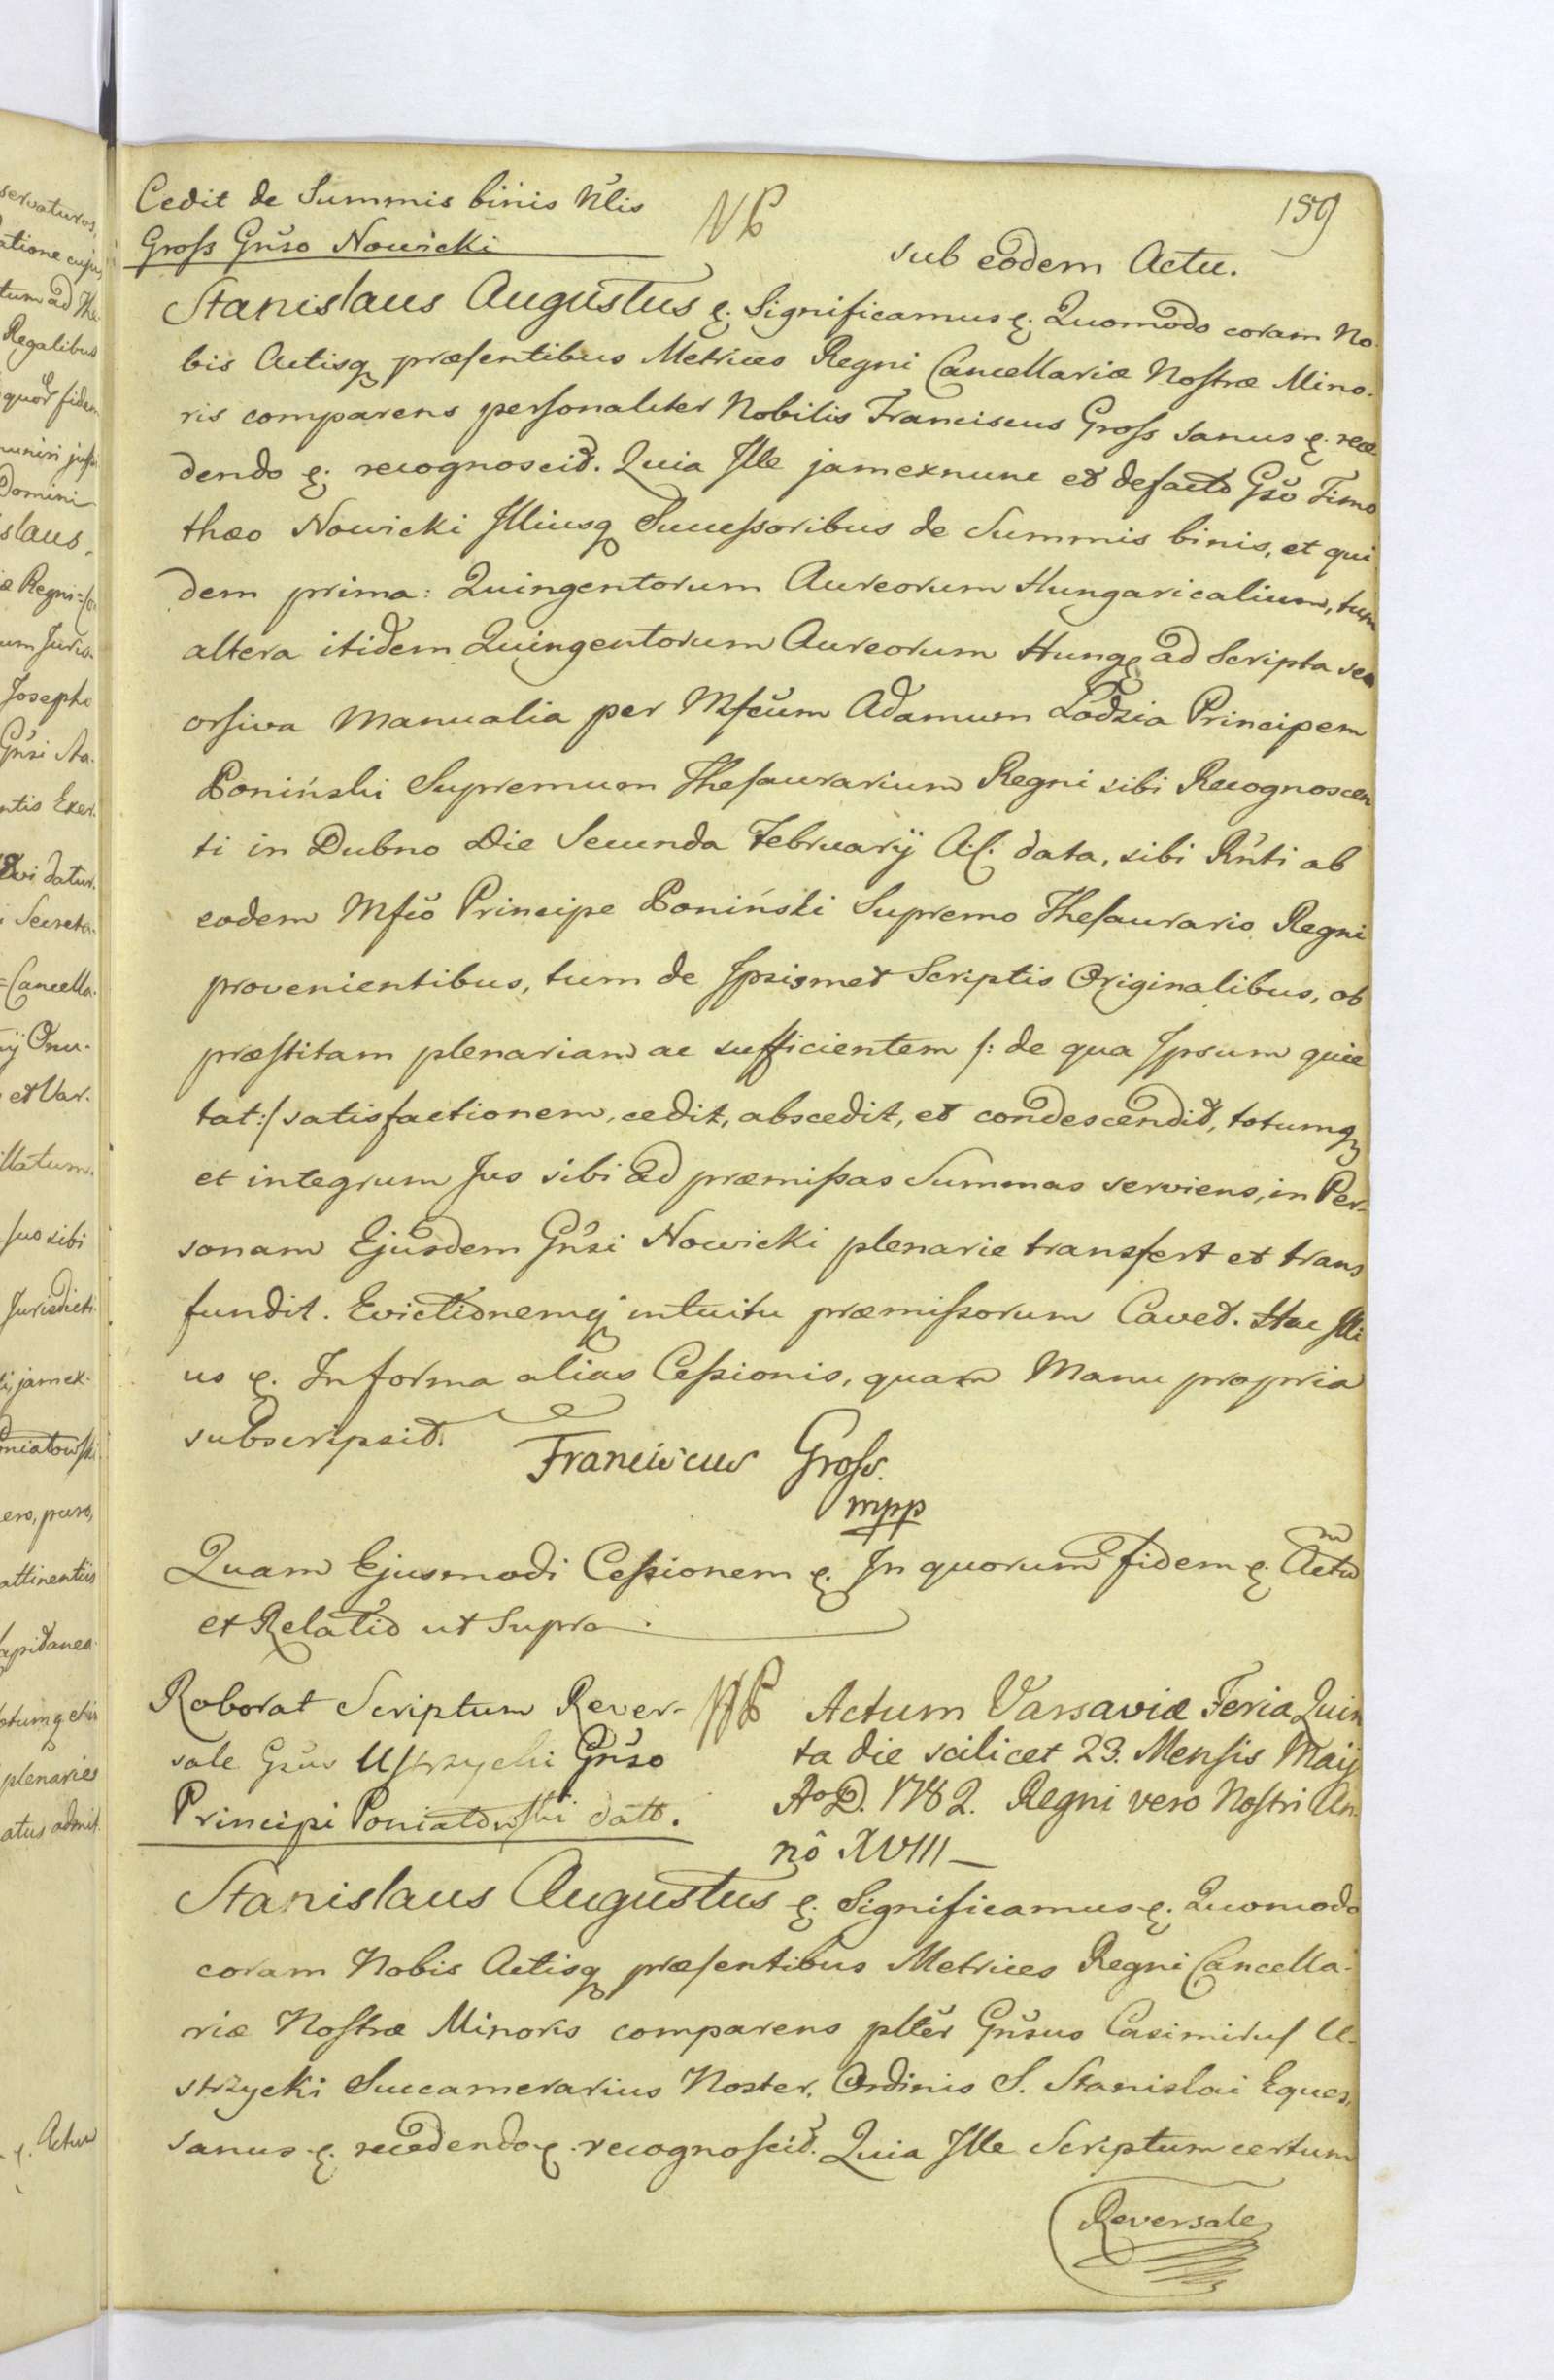 servaturos,
atione cuju
tum ad The
Regalibus
quor fidem
muniri jussi
Domini
slaus,
æ Regni
um Juris
Josepho
Gnsi
ntis Exer
datur.
Secreta
Cancella
ij Onu-
et Var.
llatum.
suo sibi
Jurisdicti
jamex-
niatowski
ero, puro,
attinentiis
apitanea
totumq
plenarie
atus admit
ę. Actum
159
Cedit de Summis binis Nlis
Gross Gnso Nowicki
NB
sub eodem Actu.
Stanislaus Augustus ę. Significamus ę. Quomodo coram No-
bis Actisq præsentibus Metrices Regni Cancellariæ Nostræ Mino-
ris comparens personaliter Nobilis Franciscus Gross sanus ę. rece
dendo ę. recognoscit. Quia Ille jamexnunc et defacto Gso Timo
theo Nowicki Illiusq Successoribus de Summis binis, et qui
dem prima: Quingentorum Aureorum Hungaricalium, tum
altera itidem Quingentorum Aureorum Hungę ad Scripta se
orsiva Manualia per Mfcum Adamum Łodzia Principem
Poniński Supremum Thesaurarium Regni sibi Recognoscen
ti in Dubno Die Secunda Februarij A: C: data, sibi Rnti ab
eodem Mfco Principe Poniński Supremo Thesaurario Regni
provenientibus, tum de Ipsismet Scriptis Originalibus, ob
præstitam plenariam ac sufficientem /: de qua Ipsum quie
tat :/ satisfactionem, cedit, abscedit, et condescendit, totumq
et integrum Jus sibi ad præmissas Summas serviens, in Per-
sonam Ejusdem Gnsi Nowicki plenarie transfert et trans
fundit. Evictionemq intuitu præmissorum Cavet. Hac Illi
us ę. In forma alias Cessionis, quam Manu propria
subscripsit.
Franciscus Gross
mpp
Quam Ejusmodi Cessionem ę. In quorum fidem ę. Actum
et Relatio ut Supra.
Roborat Scriptum Rever-
sale Gsus Ustrzycki Gnso
Principi Poniatowski dato.
NB
Actum Varsaviæ Feria Quin
ta die scilicet 23. Mensis Maij
Ao D. 1782. Regni vero Nostri An-
nô XVIII
Stanislaus Augustus ę. Significamus ę. Quomodo
coram Nobis Actisq præsentibus Metrices Regni Cancella-
riæ Nostræ Minoris comparens plter Gnsus Casimirus U-
strzycki Succamerarius Noster, Ordinis S. Stanislai Eques,
sanus ę. recedendo ę. recognoscit. Quia Ille Scriptum certum
Reversale